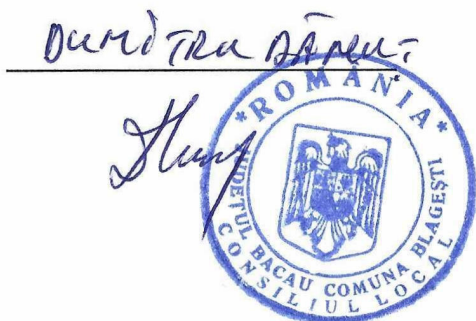 DUMITRU DĂNUȚ
*ROMÂNIA*
JUDEȚUL BACAU COMUNA BLAGEȘTI
CONSILIUL LOCAL